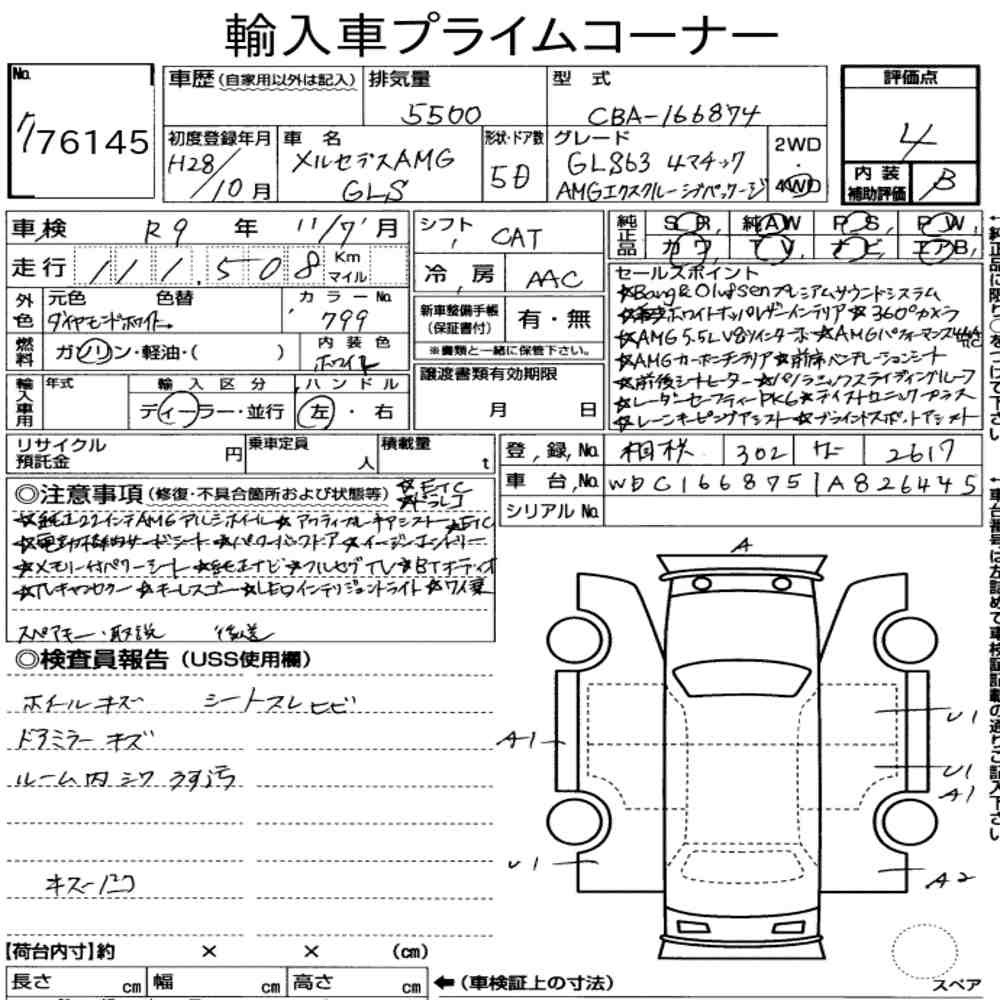 輸入車プライムコーナー
No.
776145
車歴(自家用以外は記入)
排気量
5500
型 式
CBA-166874
初度登録年月
H28/10月
車 名
メルセデスAMG
GLS
形状・ドア数
5D
グレード
GLS63 4マチック
AMGエクスクルーシブパッケージ
2WD
・
4WD
評価点
4
内 装
補助評価
B
車検 R9 年 11/7 月
走行 111,508 Km
マイル
シフト CAT
冷 房 AAC
純正品
S R, 純AW P S, P W,
カワ T V, ナビ エアB,
外色
元色 色替
ダイヤモンドホワイト
カラーNo.
799
燃料
ガソリン・軽油・( )
内装色
ホワイト
新車整備手帳
(保証書付)
有・無
※書類と一緒に保管下さい。
譲渡書類有効期限
月 日
輸入車用
年式
輸入区分
ディーラー・並行
ハンドル
左・右
セールスポイント
☆Bang&Olufsenプレミアムサウンドシステム
ホワイトナッパレザーインテリア ☆360°カメラ
☆AMG5.5L V8ツインターボ ☆AMGパフォーマンス4MATIC
☆AMGカーボンインテリア ☆前席ベンチレーションシート
☆前後シートヒーター ☆パノラミックスライディングルーフ
☆レーダーセーフティーPKG ☆ディストロニックプラス
☆レーンキーピングアシスト ☆ブラインドスポットアシスト
リサイクル
預託金
円
乗車定員
人
積載量
t
登録No. 相模 302 サ 2617
車台No. WDC1668751A826445
シリアルNo.
◎注意事項(修復・不具合箇所および状態等)
☆ETC
☆ドラレコ
☆純正22インチAMGアルミホイール ☆アクティブレーキアシスト ☆ETC
☆電動格納サードシート ☆パワーバックドア ☆イージーエントリー
☆メモリー付パワーシート ☆純正ナビ ☆フルセグTV ☆BTオーディオ
☆TVキャンセラー ☆キーレスゴー ☆LEDインテリジェントライト ☆7人乗
スペアキー・取説 後送
◎検査員報告(USS使用欄)
ホイールキズ シートスレヒビ
ドアミラーキズ
ルーム内シワうす汚
キズ一凹
A
A1
U1
U1
U1
A1
A2
【荷台内寸】約 × × (cm)
長さ cm 幅 cm 高さ cm
←(車検証上の寸法)
スペア
←純正品に限り○をつけて下さい
←車台番号は左詰めで車検証記載の通りご記入下さい